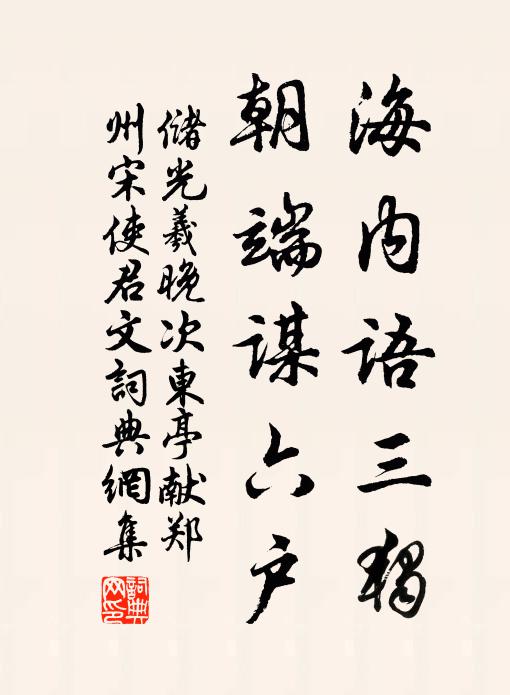 海内语三独
朝端谋六户
储光羲晚次東亭献郑
州宋使君文詞典網集
詞典
网印